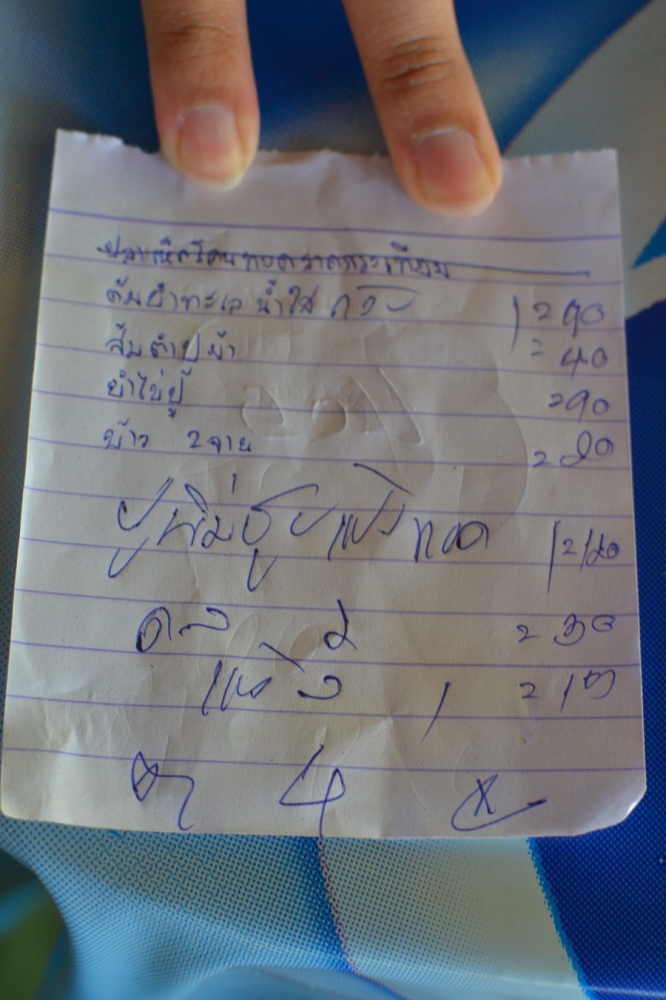 ปลาเห็ดโคนทอดราดกระเทียม
ต้มยำทะเล น้ำใส 1 = 90
ส้มตำปูม้า = 40
ยำไข่ปู = 90
ข้าว 2 จาน = 20
ปูนิ่มชุบแป้งทอด 1 = 120
2 = 30
แข็ง 1 = 15
4